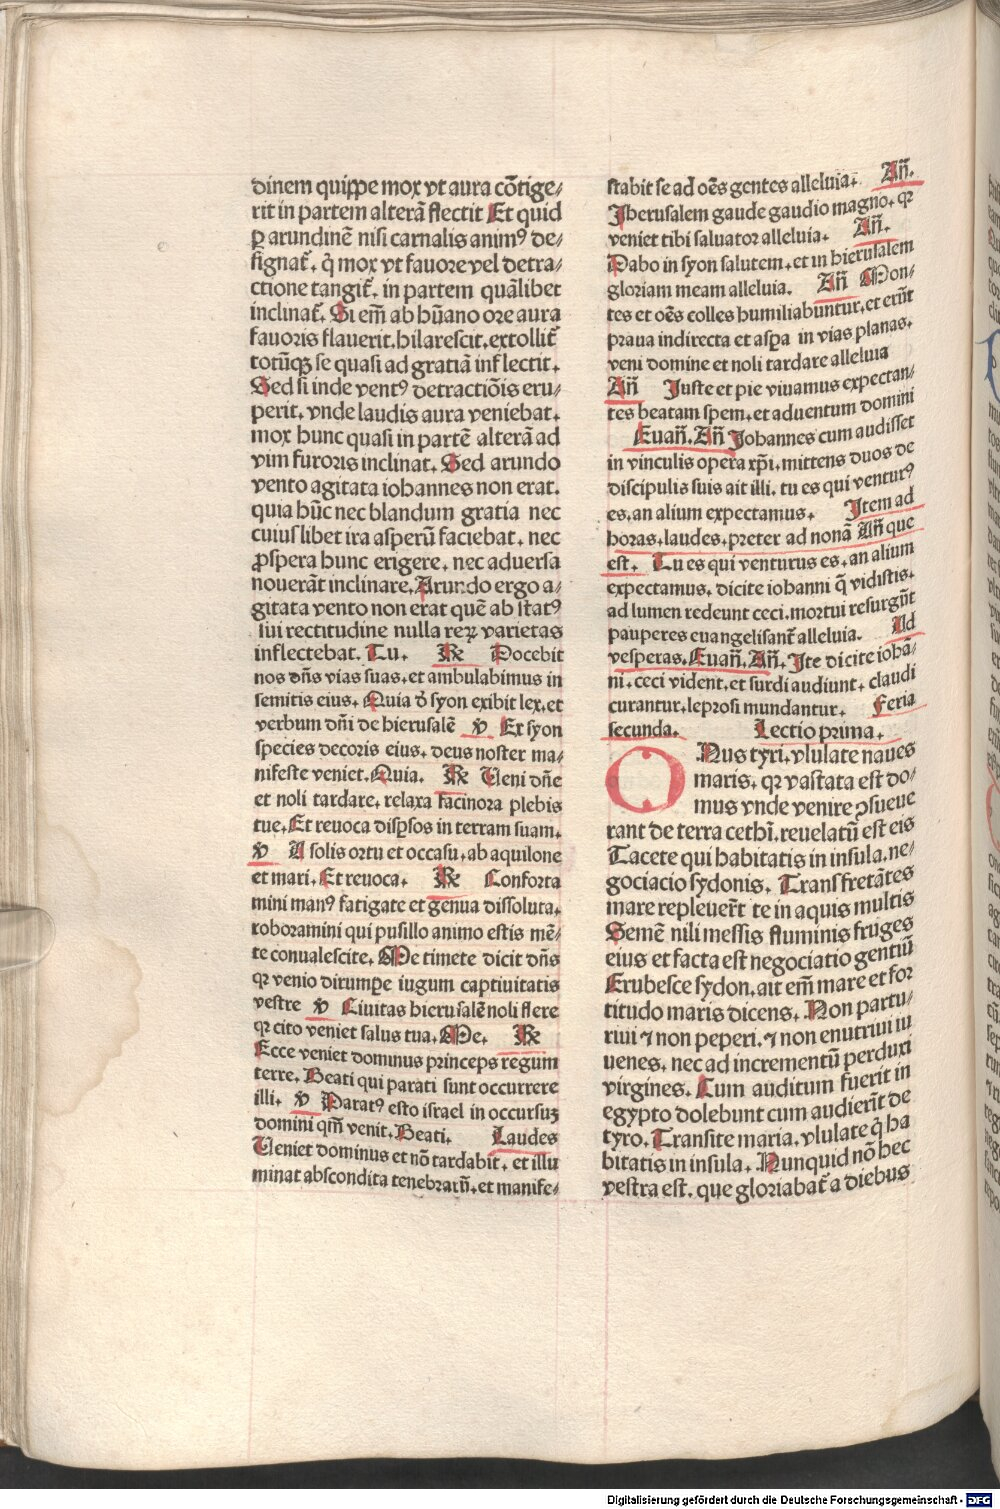 dinem quippe mox vt aura cōtige⸗
rit in partem alterā flectit Et quid
ꝑ arundinē nisi carnalis animꝰ de⸗
signat᷑. q̇ mox vt fauore vel detra⸗
ctione tangit᷑. in partem quālibet
inclinat᷑. Si em̄ ab hūano ore aura
fauoris flauerit. hilarescit. extollit᷑
totūqꝫ se quasi ad gratiā inflectit.
Sed si inde ventꝰ detractiōis eru⸗
perit. vnde laudis aura veniebat.
mox hunc quasi in partē alterā ad
vim furoris inclinat. Sed arundo
vento agitata iohannes non erat.
quia hūc nec blandum gratia nec
cuiuslibet ira asperū faciebat. nec
ꝓspera hunc erigere. nec aduersa
nouerāt inclinare. Arundo ergo a⸗
gitata vento non erat quē ab statꝰ
sui rectitudine nulla reꝝ varietas
inflectebat. Tu. R̃ Docebit
nos dn̄s vias suas. et ambulabimus in
semitis eius. Quia d̄ syon exibit lex. et
verbum dn̄i de hierusalē ꝟ Ex syon
species decoris eius. deus noster ma⸗
nifeste veniet. Quia. R̃ Ueni dn̄e
et noli tardare. relaxa facinora plebis
tue. Et reuoca disꝑsos in terram suam.
ꝟ A solis ortu et occasu. ab aquilone
et mari. Et reuoca. R̃ Conforta
mini manꝰ fatigate et genua dissoluta.
roboramini qui pusillo animo estis mē⸗
te conualescite. Ne timete dicit dn̄s
qꝛ venio dirumpe iugum captiuitatis
vestre ꝟ Ciuitas hierusalē noli flere
qꝛ cito veniet salus tua. Ne. R̃
Ecce veniet dominus princeps regum
terre. Beati qui parati sunt occurrere
illi. ꝟ Paratꝰ esto israel in occursuꝫ
domini qm̄ venit. Beati. Laudes
Ueniet dominus et nō tardabit. et illu
minat abscondita tenebraꝝ. et manife⸗
stabit se ad oēs gentes alleluia. An̄.
Jherusalem gaude gaudio magno. qꝛ
veniet tibi saluator alleluia. An̄.
Dabo in syon salutem. et in hierusalem
gloriam meam alleluia. An̄ Mon⸗
tes et oēs colles humiliabuntur. et erūt
praua indirecta et asꝑa in vias planas.
veni domine et noli tardare alleluia
An̄ Juste et pie viuamus expectan⸗
tes beatam spem. et aduentum domini
Euan̄. An̄ Johannes cum audisset
in vinculis opera xp̄i. mittens duos de
discipulis suis ait illi. tu es qui venturꝰ
es. an alium expectamus. Item ad
horas. laudes. preter ad nonā An̄ que
est. Tu es qui venturus es. an alium
expectamus. dicite iohanni q̄ vidistis.
ad lumen redeunt ceci. mortui resurgūt
pauperes euangelisant᷑ alleluia. Ad
vesperas. Euan̄. An̄. Ite dicite iohā⸗
ni. ceci vident. et surdi audiunt. claudi
curantur. leprosi mundantur. Feria
secunda. Lectio prima.
ONus tyri. vlulate naues
maris. qꝛ vastata est do⸗
mus vnde venire ꝯsueue
rant de terra cethī. reuelatū est eis
Tacete qui habitatis in insula. ne⸗
gociacio sydonis. Transfretātes
mare repleuer̄t te in aquis multis
Semē nili messis fluminis fruges
eius et facta est negociatio gentiū
Erubesce sydon. ait em̄ mare et for
titudo maris dicens. Non partu⸗
riui ⁊ non peperi. ⁊ non enutriui iu
uenes. nec ad incrementū perduxi
virgines. Cum auditum fuerit in
egypto dolebunt cum audierīt de
tyro. Transite maria. vlulate q̇ ha
bitatis in insula. Nunquid nō hec
vestra est. que gloriabat᷑ a diebus
Digitalisierung gefördert durch die Deutsche Forschungsgemeinschaft - DFG